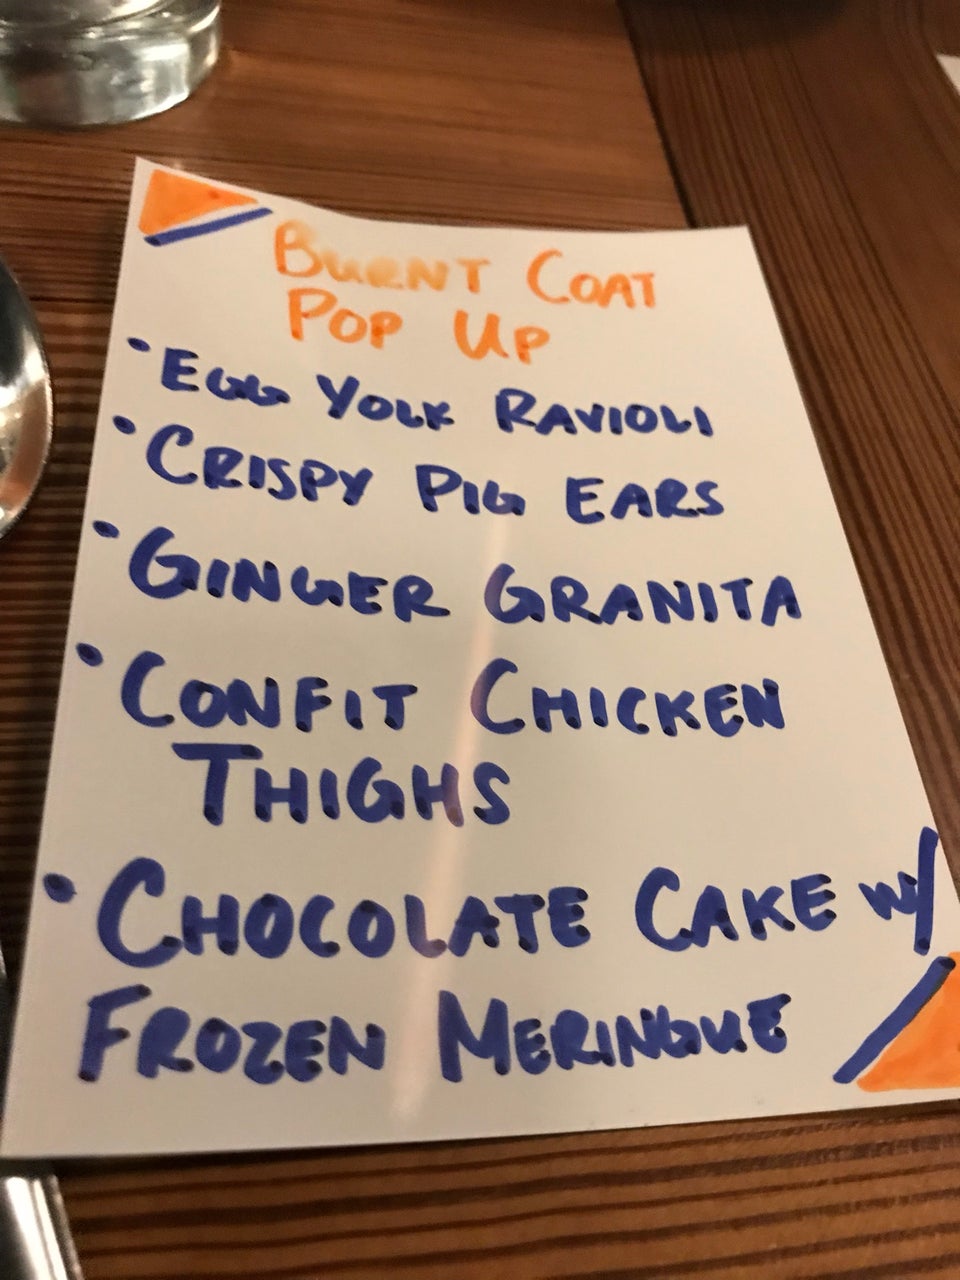 BURNT COAT
POP UP
• EGG YOLK RAVIOLI
• CRISPY PIG EARS
• GINGER GRANITA
• CONFIT CHICKEN
THIGHS
• CHOCOLATE CAKE w/
FROZEN MERINGUE